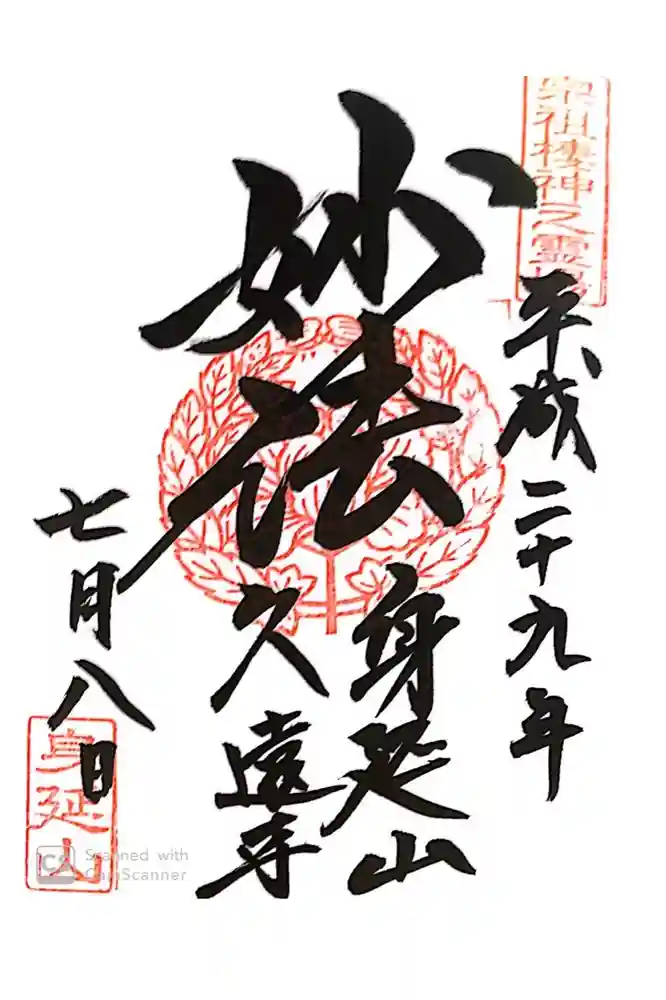 宗祖棲神之霊場
平成二十九年
妙法
身延山
久遠寺
七月八日
身延山
CS Scanned with
CamScanner